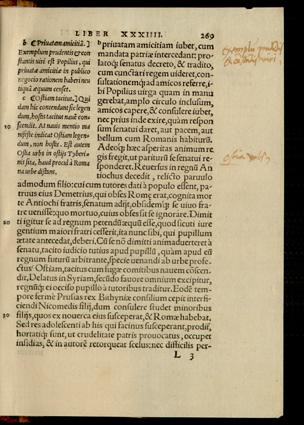 LIBER XXXIIII. 269
b Priuatam amicitiã.)
Exemplum prudentis et con
stantis uiri est Popilius, qui
priuatæ amicitiæ in publico
negocio rationem haberi nec
tiquã æquum censet.
c Ostiam tacitus.) Quí
dam hic conscendisse legen
dum, hostia tacitus naue con
scendit. At nauis mentio ma
nifesta indicat Ostiam legen
dum, non hostie. Est autem
Ostia urbs in ostijs Tyberi-
nis sita, haud procul à Roma
na urbe distans.
b priuatam amicitiam iubet, cum
mandata patriæ intercedant: pro-
latoq; senatus decreto, & tradito,
cum cunctari regem uideret, con-
sultationemq́; ad amicos referre, i-
bi Popilius uirga quam in manu
gerebat, amplo circulo inclusum,
amicos capere, & consulere iubet,
nec prius inde exire, quàm respon
sum senatui daret, aut pacem, aut
bellum cum Romanis habiturũ.
Adeoq́; hæc asperitas animum re
gis fregit, ut pariturũ se senatui re-
sponderet. Reuersus in regnũ An
tiochus decedit, relicto paruulo
admodum filio: cui cum tutores dati à populo essent, pa-
truus eius Demetrius, qui obses Romę erat, cognita mor
te Antiochi fratris, senatum adijt, obsidemq́; se uiuo fra-
tre uenisse: quo mortuo, cuius obses sit se ignorare. Dimit
ti igitur se ad regnum petendũ æquũ esse, quod sicuti iure
gentium maiori fratri cesserit, ita nunc sibi, qui pupillum
ætate antecedat, deberi. Cũ se nõ dimitti animaduerteret à
senatu, tacito iudicio tutius apud pupillũ, quàm apud eũ
regnum futurũ arbitrante, specie uenandi ab urbe profe-
ctus c Ostiam, tacitus cum fugæ comitibus nauem cõscen-
dit. Delatus in Syriam, secũdo fauore omnium excipitur,
regnũq́; ei occiso pupillo à tutoribus traditur. Eodẽ tem-
pore fermè Prusias rex Bithyniæ consilium cepit interfi-
ciendi Nicomedis filij, dum consulere studet minoribus
filijs, quos ex nouerca eius susceperat, & Romæ habebat.
Sed res adolescenti ab his qui facinus susceperant, prodit̃,
hortatiq́; sunt, ut crudelitate patris prouocatus, occupet
insidias, & in autorẽ retorqueat scelus: nec difficilis per-
L 3